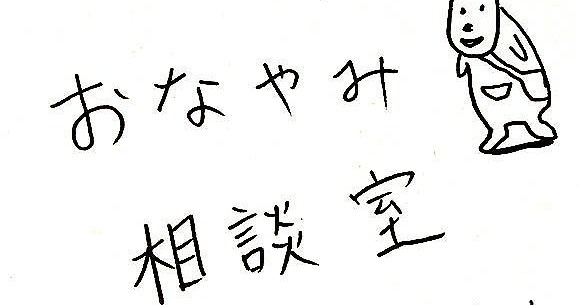 おなやみ
相談室